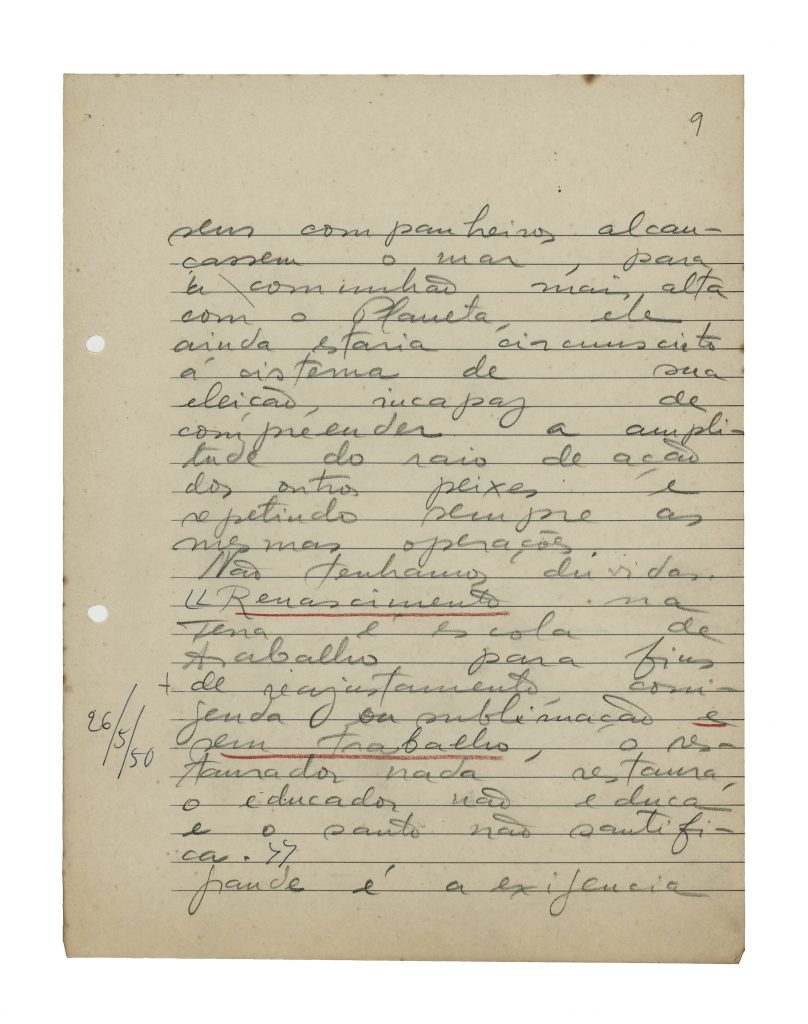 9
seus companheiros alcan-
çassem o mar, para
a comunhão mais alta
com o Planeta, ele
ainda estaria circunscrito
á cisterna de sua
eleição, incapaz de
compreender a ampli-
tude do raio de ação
dos outros peixes e
repetindo sempre as
mesmas operações
Não tenhamos dúvidas.
"Renascimento na
Terra é escola de
trabalho para fins
+ de reajustamento corri-
genda ou sublimação e
26/5/50
sem trabalho, o res-
taurador nada restaura,
o educador não educa
e o santo não santifi-
ca."
grande é a exigencia